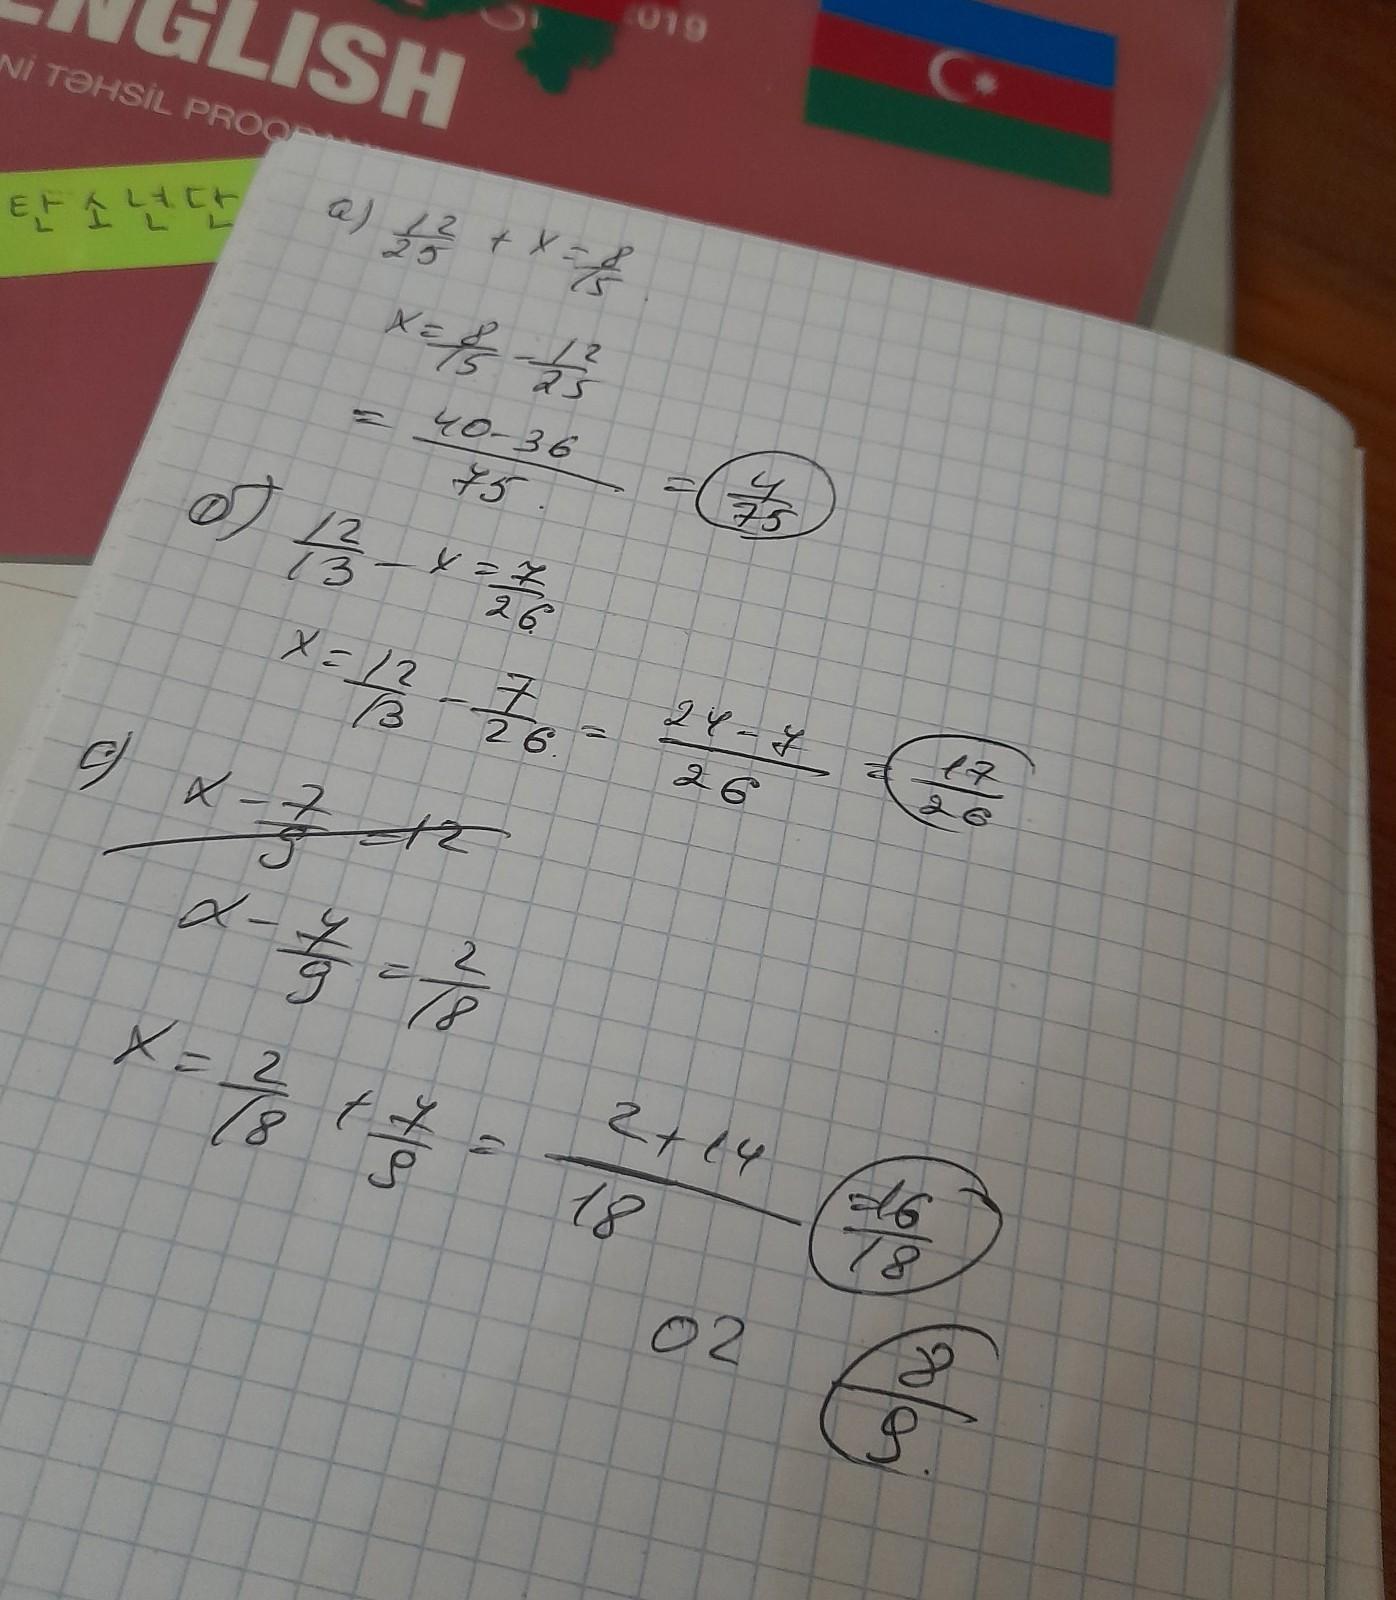 ENGLISH
2019
Nİ TƏHSİL PROQRAM
탄소년단
a) 12/25 + x = 8/15
x = 8/15 - 12/25
= 40-36/75 = 4/75
б) 12/13 - x = 7/26
x = 12/13 - 7/26 = 24-7/26 = 17/26
c) x - 7/9 = 12
x - 7/9 = 2/18
x = 2/18 + 7/9 = 2+14/18 = 16/18
02 8/9.